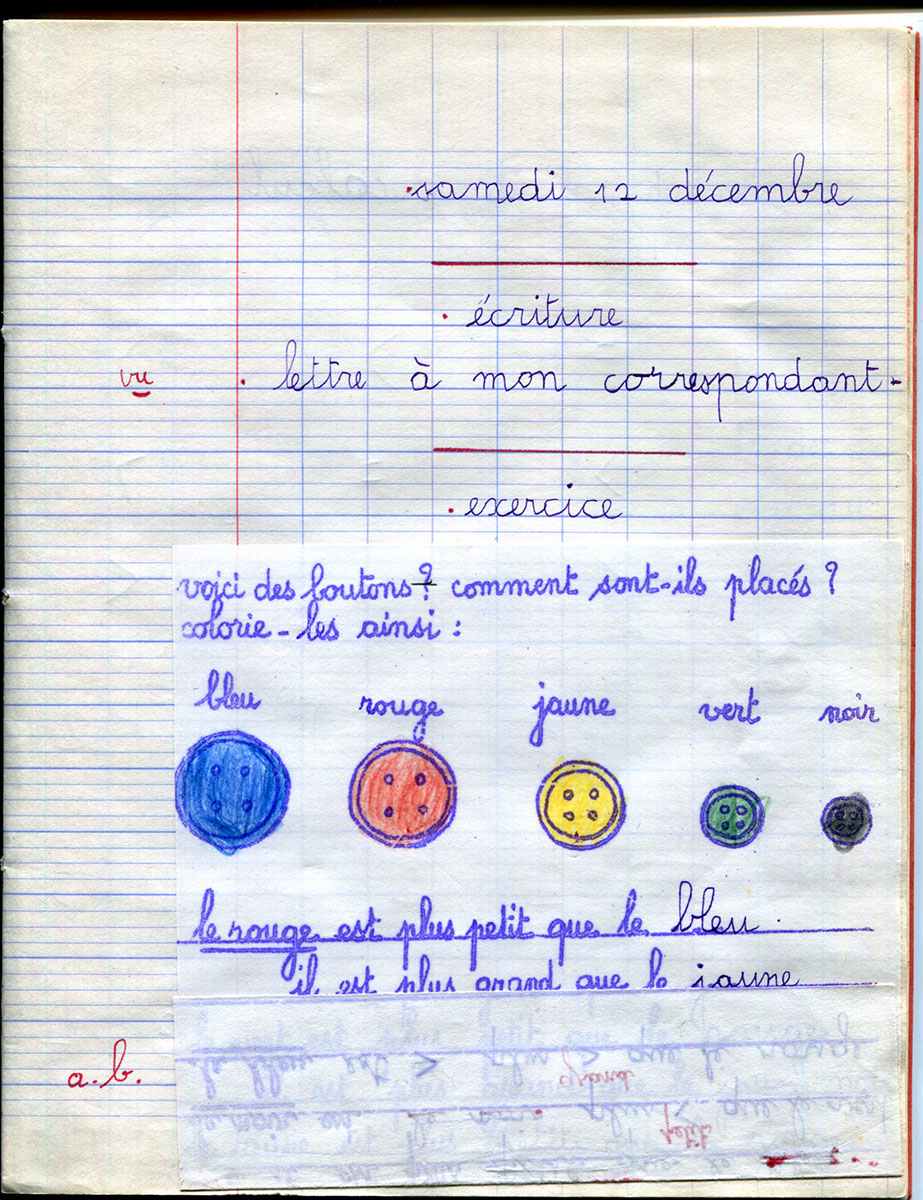 samedi 12 décembre
. écriture
vu . lettre à mon correspondant-
. exercice
voici des boutons? comment sont-ils placés ?
colorie-les ainsi :
bleu rouge jaune vert noir
le rouge est plus petit que le bleu.
il est plus grand que le jaune
a.b.
grand
petit